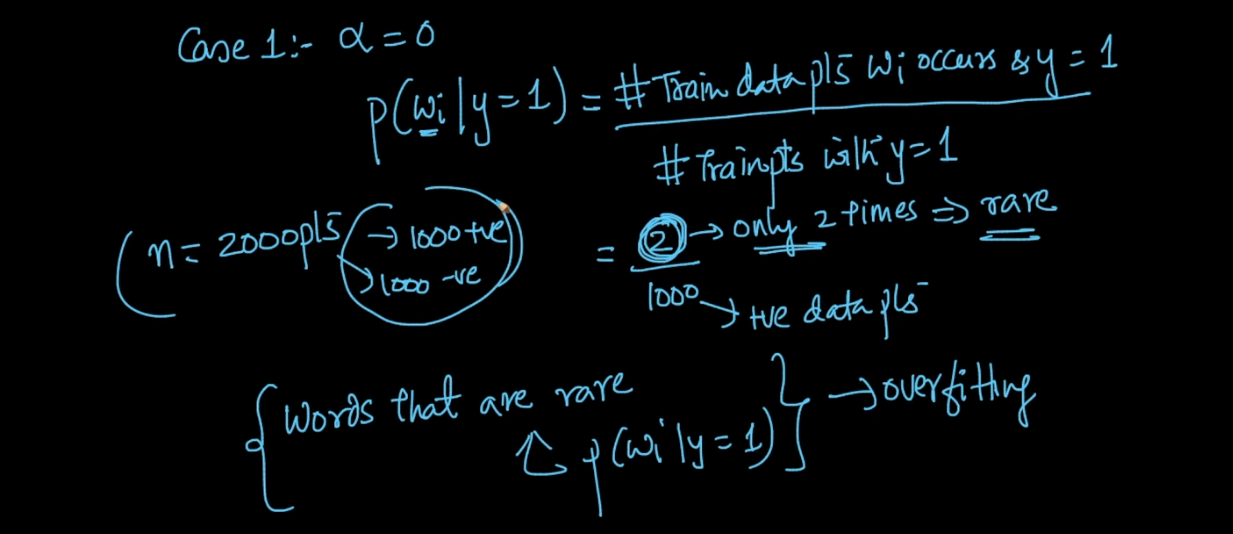 Case 1:- α = 0
P(wi | y=1) = # Train data pts wi occurs & y = 1
# Train pts with y=1
(n = 2000 pts → 1000 +ve
→ 1000 -ve
= 2 → only 2 times ⇒ rare
1000 → +ve data pts
{ Words that are rare } → overfitting
P(wi | y = 1)